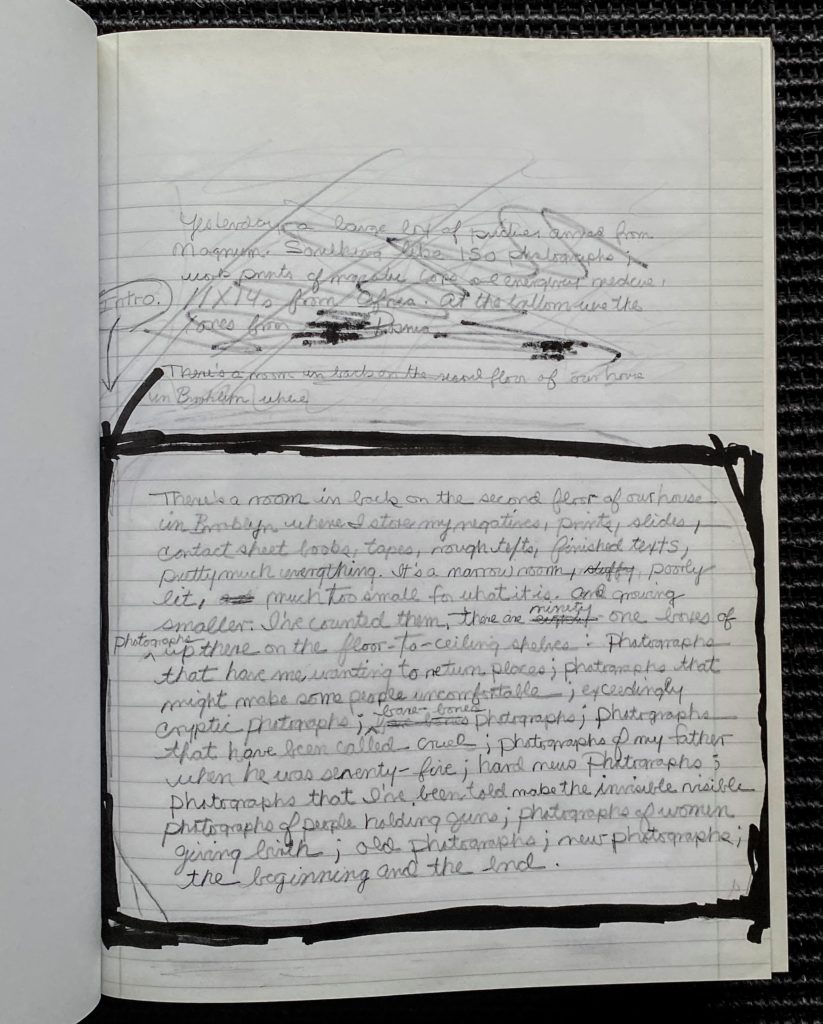 Yesterday a large box of pictures arrived from
Magnum. Something like 150 photographs;
work prints of energency medicine,
Intro.
11X14s from Africa. At the bottom were the
ones from Bosnia
There's a room in back on the second floor of our house
in Brooklyn where
There's a room in back on the second floor of our house
in Brooklyn where I store my negatives, prints, slides,
contact sheet books, tapes, rough txts, finished texts,
pretty much everything. It's a narrow room, stuffy, poorly
lit, much too small for what it is. and growing
smaller. I've counted them, there are ninety-one boxes of
photographs up there on the floor-to-ceiling shelves: Photographs
that have me wanting to return places; photographs that
might make some people uncomfortable; exceedingly
cryptic photographs; bare-bones photographs; photographs
that have been called cruel; photographs of my father
when he was seventy-five; hard news photographs;
photographs that I've been told make the invisible visible
photographs of people holding guns; photographs of women
giving birth; old photographs; new photographs;
the beginning and the end.